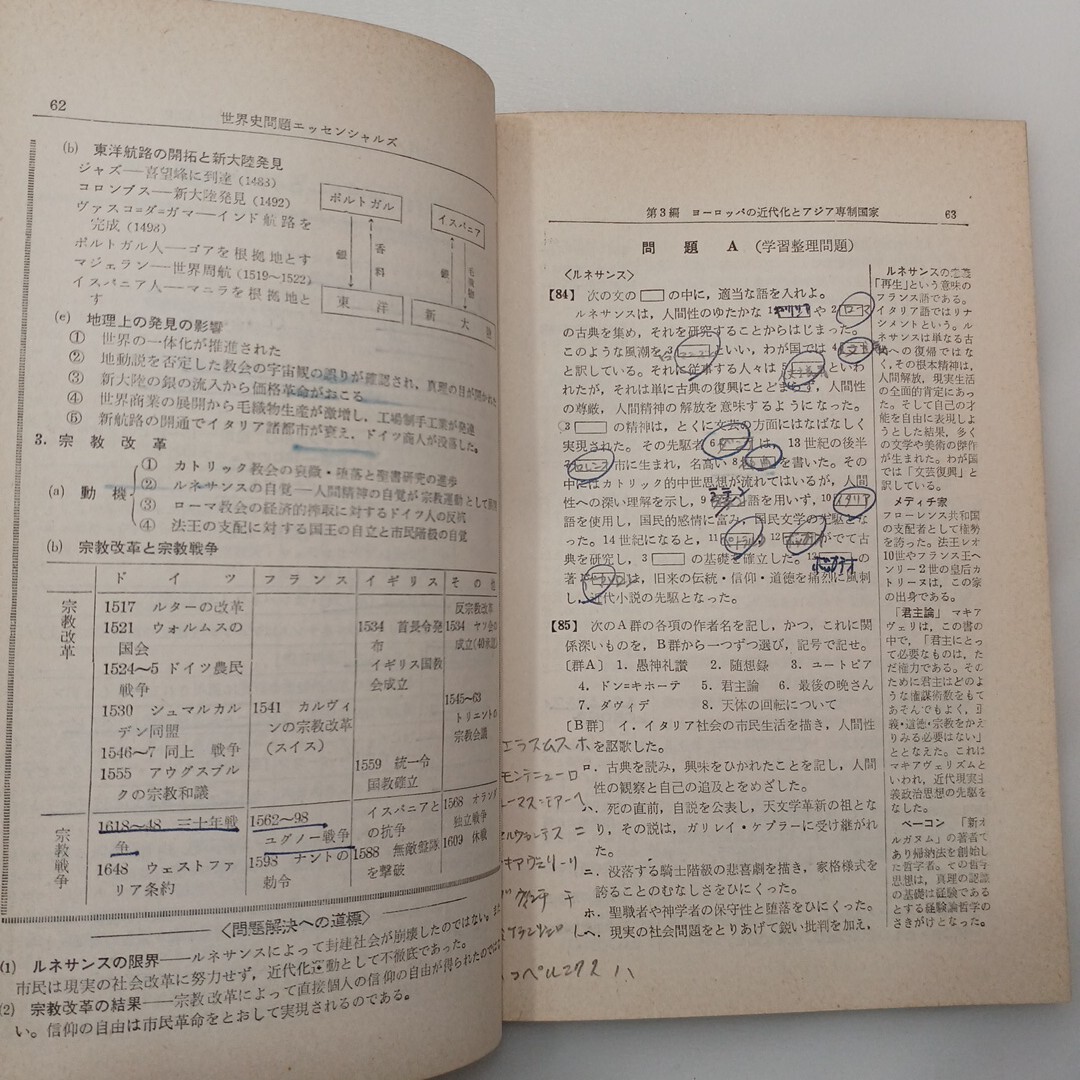 62
世界史問題エッセンシャルズ
(b) 東洋航路の開拓と新大陸発見
ジャズ──喜望峰に到達 (1483)
コロンブス──新大陸発見 (1492)
ヴァスコ=ダ=ガマ──インド航路を
完成 (1498)
ポルトガル人──ゴアを根拠地とす
マジェラン──世界周航 (1519〜1522)
イスパニア人──マニラを根拠地と
す
ポルトガル
イスパニア
銀
香料
銀
毛織物
東洋
新大陸
(c) 地理上の発見の影響
① 世界の一体化が推進された
② 地動説を否定した教会の宇宙観の誤りが確認され,真理の目が開かれた
③ 新大陸の銀の流入から価格革命がおこる
④ 世界商業の展開から毛織物生産が激増し,工場制手工業が発達
⑤ 新航路の開通でイタリア諸都市が衰え,ドイツ商人が没落した。
3. 宗教改革
(a) 動機
① カトリック教会の衰微・堕落と聖書研究の進歩
② ルネサンスの自覚──人間精神の自覚が宗教運動として
③ ローマ教会の経済的搾取に対するドイツ人の反抗
④ 法王の支配に対する国王の自立と市民階級の自覚
(b) 宗教改革と宗教戦争
ドイツ フランス イギリス その他
宗教改革
1517 ルターの改革
1521 ウォルムスの
国会
1524〜5 ドイツ農民
戦争
1530 シュマルカル
デン同盟
1546〜7 同上 戦争
1555 アウグスブル
クの宗教和議
1541 カルヴィ
ンの宗教改革
(スイス)
1534 首長令発
布
イギリス国教
会成立
1559 統一令
国教確立
反宗教改革
1534 ヤソ会の
成立(40承認)
1545〜63
トリエントの
宗教会議
宗教戦争
1618〜48 三十年戦
争
1648 ウェストファ
リア条約
1562〜98
ユグノー戦争
1598 ナントの
勅令
イスパニアと
の抗争
1588 無敵艦隊
を撃破
1568 オランダ
独立戦争
1609 休戦
〈問題解決への道標〉
(1) ルネサンスの限界──ルネサンスによって封建社会が崩壊したのではない。また
市民は現実の社会改革に努力せず,近代化運動として不徹底であった。
(2) 宗教改革の結果──宗教改革によって直接個人の信仰の自由が得られたのではな
い。信仰の自由は市民革命をとおして実現されるのである。
第3編 ヨーロッパの近代化とアジア専制国家 63
問題 A (学習整理問題)
〈ルネサンス〉
【84】 次の文の□の中に,適当な語を入れよ。
ルネサンスは,人間性のゆたかな 1 ギリシア や 2 ローマ
の古典を集め,それを研究することからはじまった。
このような風潮を 3 といい,わが国では 4
と訳している。それに従事する人々は 5 といわ
れたが,それは単に古典の復興にとどまらず,人間性
の尊厳,人間精神の解放を意味するようになった。
3 □ の精神は,とくに文芸の方面にはなばなしく
実現された。その先駆者 6 ダンテ は,13世紀の後半
7 市に生まれ,名高い 8 神曲 を書いた。その
中にはカトリック的中世思想が流れてはいるが,人間
性への深い理解を示し,9 ラテン 語を用いず,10 イタリア
語を使用し,国民的感情に富み,国民文学の先駆とな
った。14世紀になると,11 12 がでて古
典を研究し,3 □ の基礎を確立した。 ボッカチオ の
著 は,旧来の伝統・信仰・道徳を痛烈に風刺
し,近代小説の先駆となった。
【85】 次のA群の各項の作者名を記し,かつ,これに関
係深いものを,B群から一つずつ選び,記号で記せ。
〔群A〕 1. 愚神礼讃 2. 随想録 3. ユートピア
4. ドン=キホーテ 5. 君主論 6. 最後の晩さん
7. ダヴィデ 8. 天体の回転について
〔B群〕 イ. イタリア社会の市民生活を描き,人間性
を謳歌した。
ロ. 古典を読み,興味をひかれたことを記し,人間
性の観察と自己の追及とをめざした。
ハ. 死の直前,自説を公表し,天文学革新の祖とな
り,その説は,ガリレイ・ケプラーに受け継がれ
た。
ニ. 没落する騎士階級の悲喜劇を描き,家格様式を
誇ることのむなしさをにくった。
ホ. 聖職者や神学者の保守性と堕落をにくった。
ヘ. 現実の社会問題をとりあげて鋭い批判を加え,
エラスムス ホ
モンテニュー ロ
ーマス=モアー ヘ
セルヴァンテス ニ
キアヴェリー リ
チ
コペルニクス ハ
ルネサンスの意義
「再生」という意味の
フランス語である。
イタリア語ではリナ
シメントという。ル
ネサンスは単なる古
への復帰ではな
く,その根本精神は,
人間解放,現実生活
の全面的肯定にあっ
た。そして自己の才
能を自由に表現しよ
うとした結果,多く
の文学や美術の傑作
が生まれた。わが国
では「文芸復興」と
訳している。
メディチ家
フローレンス共和国
の支配者として権勢
を誇った。法王レオ
10世やフランス王ヘ
ンリー2世の皇后カ
トリーヌは,この家
の出身である。
「君主論」 マキア
ヴェリは,この書の
中で,「君主にとっ
て必要なものは,た
だ権力である。その
ために君主はどのよ
うな権謀術数をもて
あそんでもよく,正
義・道徳・宗教をかえ
りみる必要はない」
ととなえた。これは
マキアヴェリズムと
いわれ,近代現実主
義政治思想の先駆を
なした。
ベーコン 「新オ
ルガヌム」の著者で
あり帰納法を創始し
た哲学者。その哲学
思想は,真理の認識
の基礎は経験である
とする経験論哲学の
さきがけとなった。